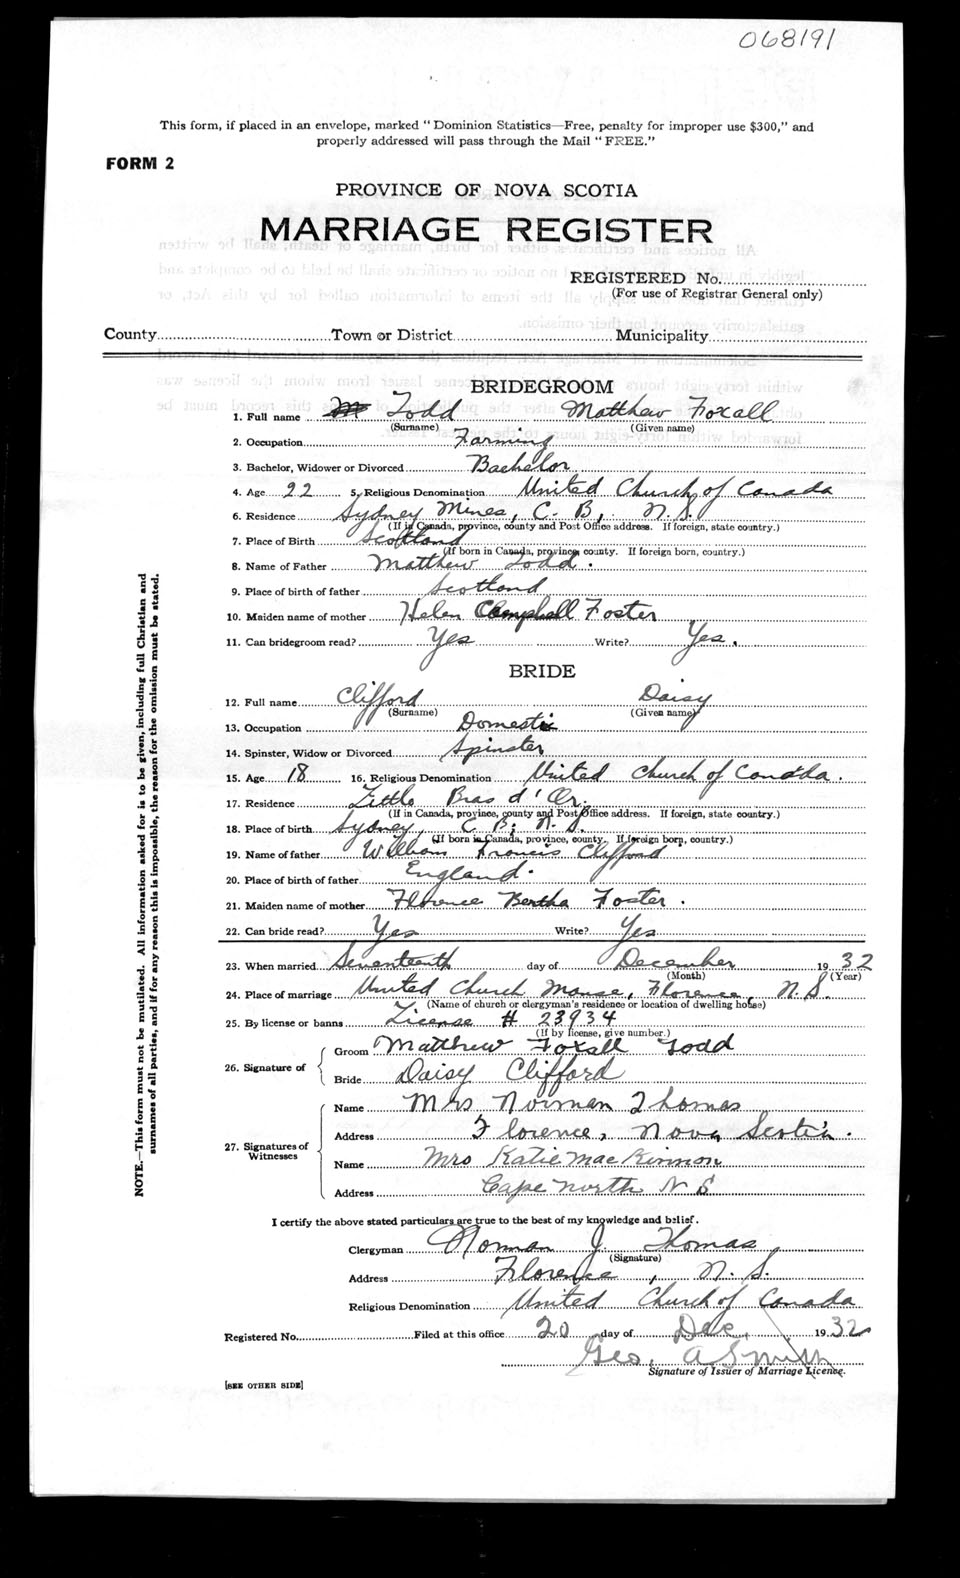 068191
This form, if placed in an envelope, marked "Dominion Statistics—Free, penalty for improper use $300," and
properly addressed will pass through the Mail "FREE."
FORM 2
PROVINCE OF NOVA SCOTIA
MARRIAGE REGISTER
REGISTERED No.
(For use of Registrar General only)
County Town or District Municipality
BRIDEGROOM
1. Full name Todd Matthew Foxall
(Surname) (Given name)
2. Occupation Farming
3. Bachelor, Widower or Divorced Bachelor
4. Age 22 5. Religious Denomination United Church of Canada
6. Residence Sydney Mines, C. B., N. S.
(If in Canada, province, county and Post Office address. If foreign, state country.)
7. Place of Birth Scotland
(If born in Canada, province, county. If foreign born, country.)
8. Name of Father Matthew Todd.
9. Place of birth of father Scotland
10. Maiden name of mother Helen Campbell Foster
11. Can bridegroom read? Yes Write? Yes.
BRIDE
12. Full name Clifford Daisy
(Surname) (Given name)
13. Occupation Domestic
14. Spinster, Widow or Divorced Spinster
15. Age 18 16. Religious Denomination United Church of Canada.
17. Residence Little Bras d'Or.
(If in Canada, province, county and Post Office address. If foreign, state country.)
18. Place of birth Sydney, C. B; N. S.
(If born in Canada, province, county. If foreign born, country.)
19. Name of father William Francis Clifford
20. Place of birth of father England.
21. Maiden name of mother Florence Bertha Foster.
22. Can bride read? Yes Write? Yes
23. When married Seventeenth day of December 1932
(Month) (Year)
24. Place of marriage United Church Manse, Florence, N. S.
(Name of church or clergyman's residence or location of dwelling house)
25. By license or banns License # 23934
(If by license, give number.)
26. Signature of
Groom Matthew Foxall Todd
Bride Daisy Clifford
27. Signatures of Witnesses
Name Mrs Norman Thomas
Address Florence, Nova Scotia.
Name Mrs Katie MacKinnon
Address Cape North N S
I certify the above stated particulars are true to the best of my knowledge and belief.
Clergyman Norman J. Thomas
(Signature)
Address Florence, N. S.
Religious Denomination United Church of Canada
Registered No. Filed at this office 20 day of Dec. 1932
Geo. A Smith
Signature of Issuer of Marriage Licence.
[SEE OTHER SIDE]
NOTE.—This form must not be mutilated. All information asked for is to be given, including full Christian and
surnames of all parties, and if for any reason this is impossible, the reason for the omission must be stated.